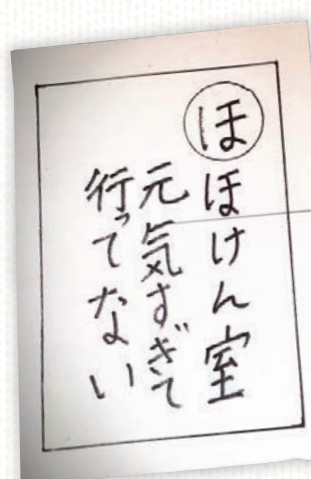 ほ
ほけん室
元気すぎて
行ってない